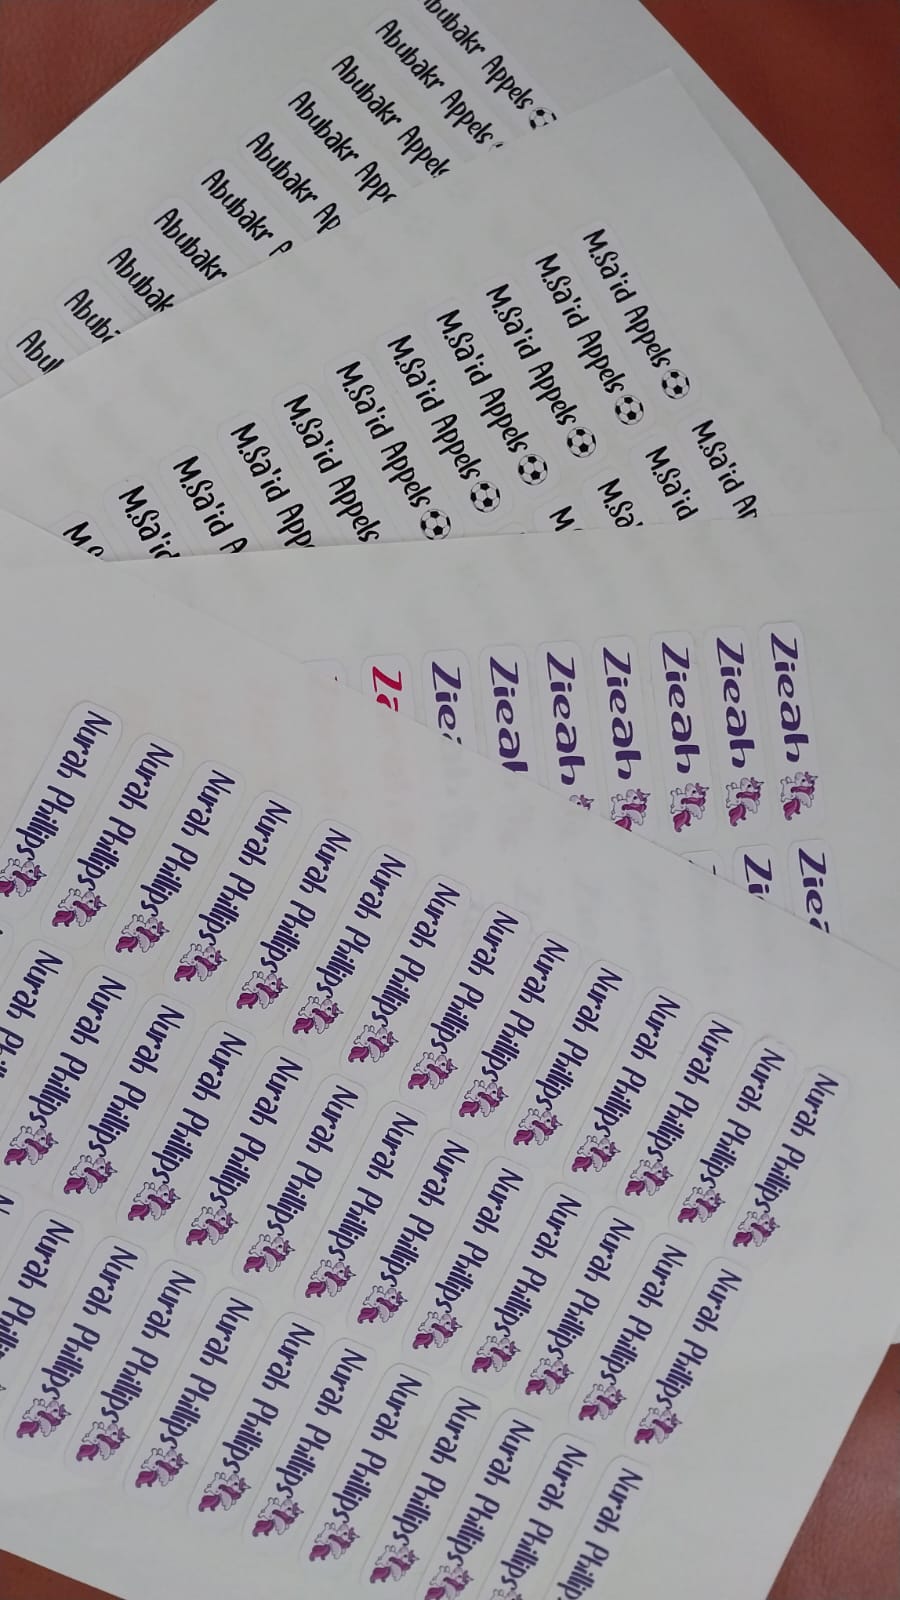 Abubakr Appels
Abubakr Appels
Abubakr Appels
Abubakr
Abubakr
Abubakr
Abubakr
M.Sa'id Appels
M.Sa'id Appels
M.Sa'id Appels
M.Sa'id Appels
M.Sa'id Appels
M.Sa'id Appels
M.Sa'id Appels
M.Sa'id
M.Sa'id
M.Sa'id
M.Sa'id
Zieah
Zieah
Zieah
Zieah
Zieah
Nurah Phillips
Nurah Phillips
Nurah Phillips
Nurah Phillips
Nurah Phillips
Nurah Phillips
Nurah Phillips
Nurah Phillips
Nurah Phillips
Nurah Phillips
Nurah Phillips
Nurah Phillips
Nurah Phillips
Nurah Phillips
Nurah
Nurah Phillips
Nurah Phillips
Nurah Phillips
Nurah Phillips
Nurah Phillips
Nurah Phillips
Nurah Phillips
Nurah Phillips
Nurah Phillips
Nurah Phillips
Nurah Phillips
Nurah Phillips
Nurah
Nurah Phillips
Nurah Phillips
Nurah Phillips
Nurah Phillips
Nurah Phillips
Nurah Phillips
Nurah Phillips
Nurah Phillips
Nurah Phillips
Nurah